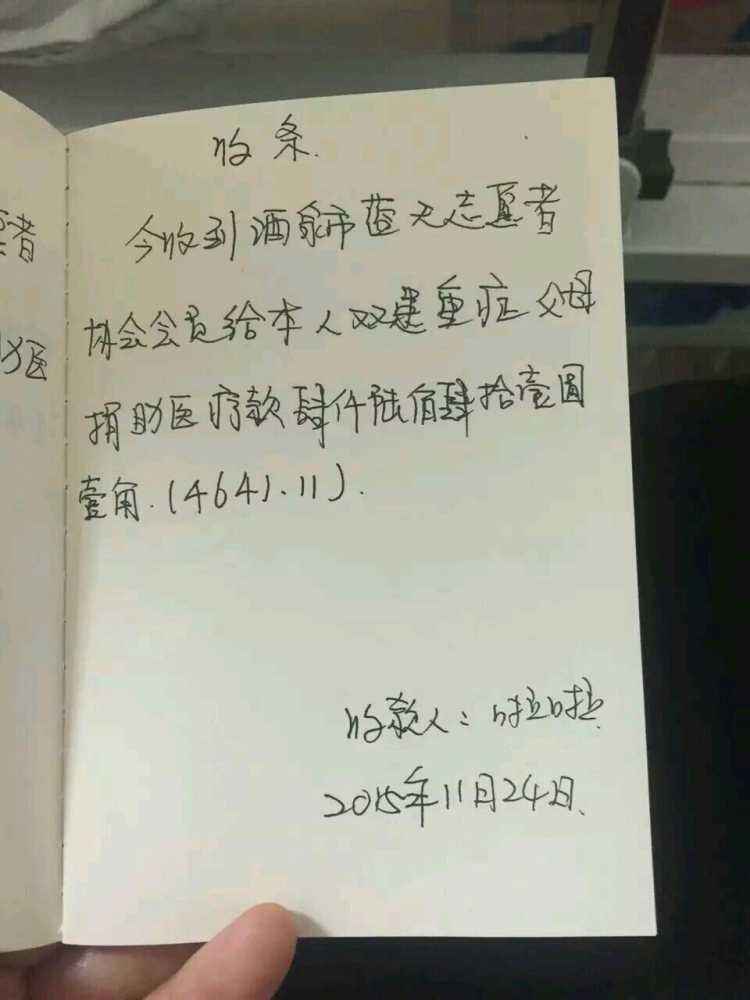 者
助医
收条.
今收到酒泉市蓝天志愿者
协会会员给本人双患重症父母
捐助医疗款肆仟陆佰肆拾壹圆
壹角.(4641.11).
收款人:啦啦
2015年11月24日.